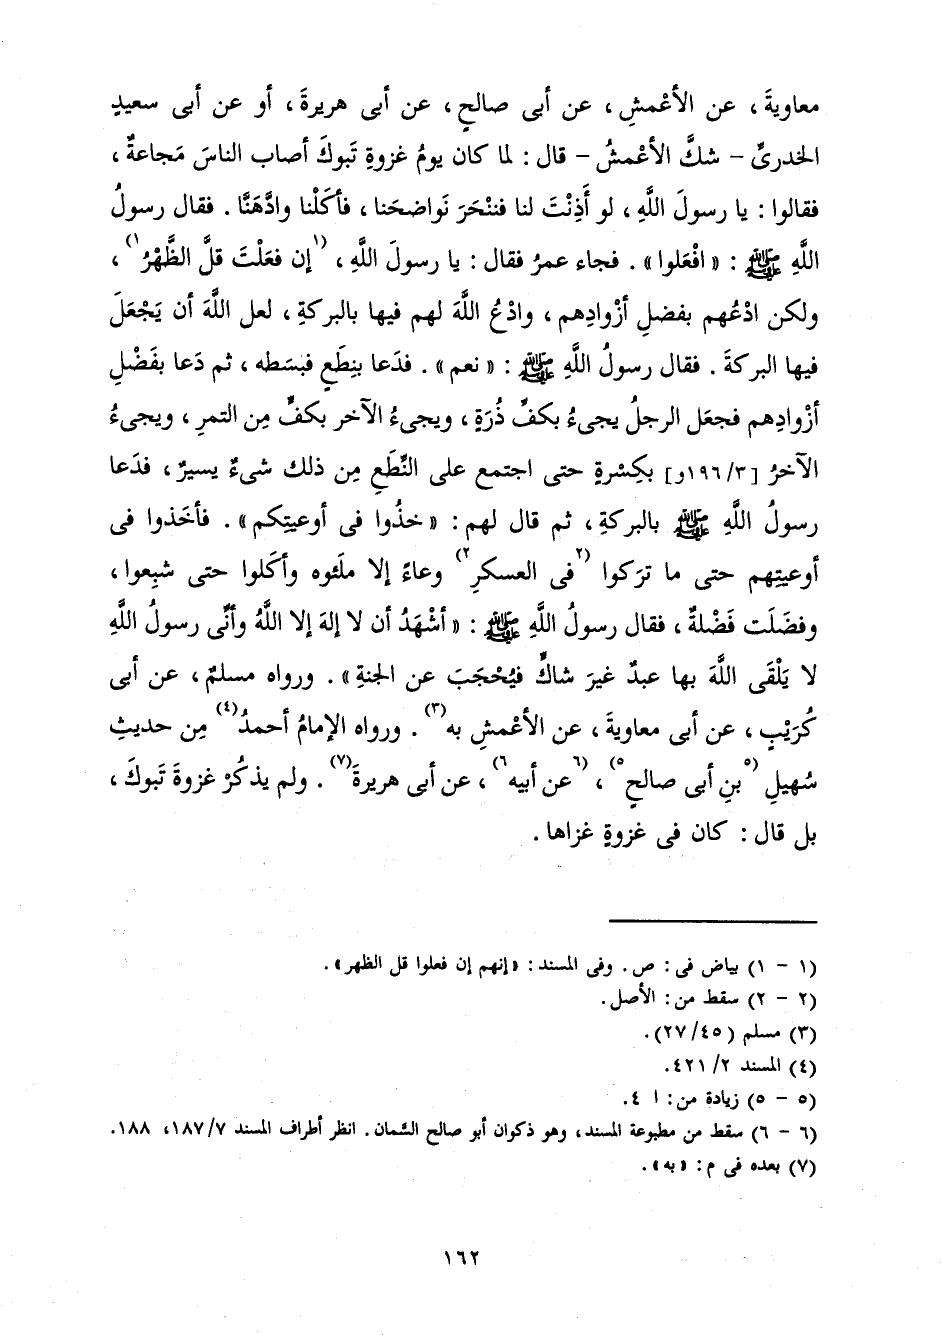 معاويةَ ، عن الأعْمشِ ، عن أبى صالحٍ ، عن أبى هريرةَ ، أو عن أبى سعيدٍ
الخدرىِّ – شكَّ الأعْمشُ – قال : لما كان يومُ غزوةِ تَبوكَ أصاب الناسَ مَجاعةٌ ،
فقالوا : يا رسولَ اللَّهِ ، لو أَذِنْتَ لنا فننْحَرَ نَواضحَنا ، فأكَلْنا وادَّهَنَّا . فقال رسولُ
اللَّهِ ﷺ : « افْعَلوا » . فجاء عمرُ فقال : يا رسولَ اللَّهِ ، (١إن فعَلْتَ قلَّ الظَّهْرُ١) ،
ولكن ادْعُهم بفضلِ أزْوادِهم ، وادْعُ اللَّهَ لهم فيها بالبركةِ ، لعل اللَّهَ أن يَجْعَلَ
فيها البركةَ . فقال رسولُ اللَّهِ ﷺ : « نعم » . فدَعا بنِطَعٍ فبسَطه ، ثم دَعا بفَضْلِ
أزْوادِهم فجعَل الرجلُ يجىءُ بكفِّ ذُرَةٍ ، ويجىءُ الآخر بكفٍّ مِن التمرِ ، ويجىءُ
الآخرُ [١٩٦/٣و] بكِسْرةٍ حتى اجتمع على النِّطَعِ مِن ذلك شىءٌ يسيرٌ ، فدَعا
رسولُ اللَّهِ ﷺ بالبركةِ ، ثم قال لهم : « خذُوا فى أوعيتِكم » . فأخَذوا فى
أوعيتِهم حتى ما ترَكوا (٢فى العسكرِ٢) وعاءً إلا ملَئوه وأكَلوا حتى شبِعوا ،
وفضَلَت فَضْلةٌ ، فقال رسولُ اللَّهِ ﷺ : « أشْهَدُ أن لا إلهَ إلا اللَّهُ وأنِّى رسولُ اللَّهِ
لا يَلْقَى اللَّهَ بها عبدٌ غيرَ شاكٍّ فيُحْجَبَ عن الجنةِ » . ورواه مسلمٌ ، عن أبى
كُرَيْبٍ ، عن أبى معاويةَ ، عن الأعْمشِ به(٣) . ورواه الإمامُ أحمدُ(٤) مِن حديثِ
سُهيلِ (٥بنِ أبى صالحٍ٥) ، (٦عن أبيه٦) ، عن أبى هريرةَ(٧) . ولم يذكُرْ غزوةَ تَبوكَ ،
بل قال : كان فى غزوةٍ غزاها .
(١ – ١) بياض فى : ص . وفى المسند : « إنهم إن فعلوا قل الظهر » .
(٢ – ٢) سقط من : الأصل .
(٣) مسلم (٢٧/٤٥) .
(٤) المسند ٤٢١/٢ .
(٥ – ٥) زيادة من : ا ٤ .
(٦ – ٦) سقط من مطبوعة المسند ، وهو ذكوان أبو صالح السَّمان . انظر أطراف المسند ١٨٧/٧، ١٨٨ .
(٧) بعده فى م : « به » .
١٦٢